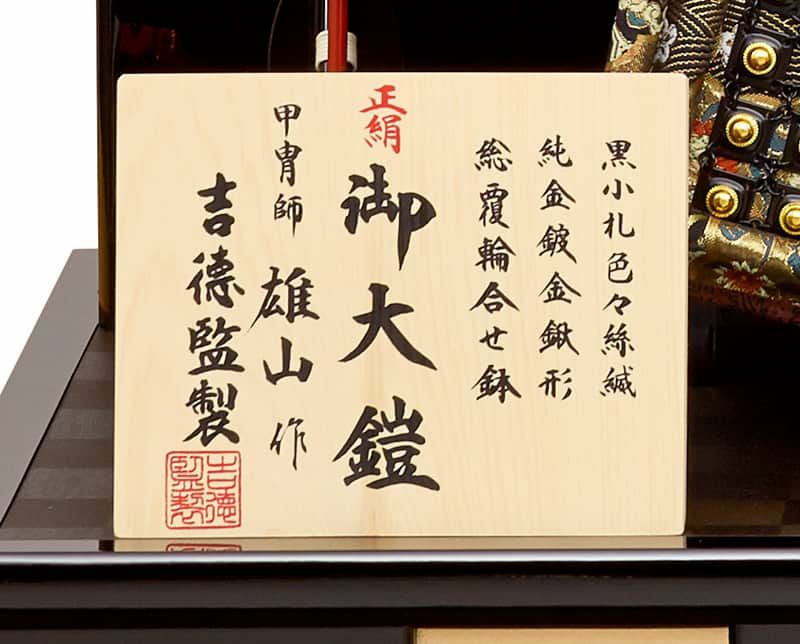 黒小札色々絲縅
純金鍍金鍬形
総覆輪合せ鉢
正絹
御大鎧
甲冑師 雄山作
吉德監製
吉德監製